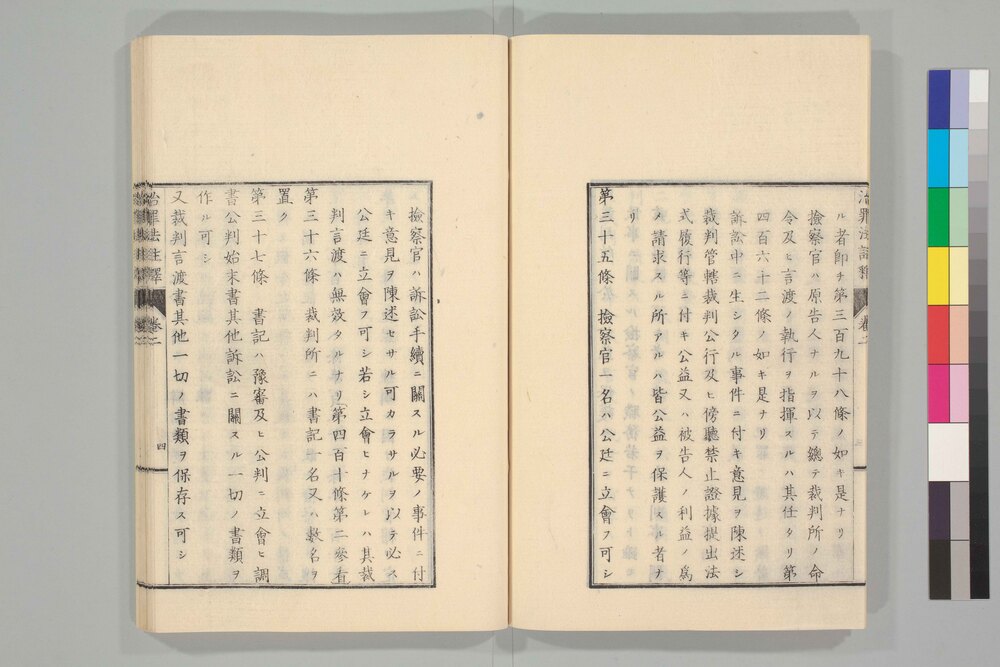 治罪法註釋 卷二
ル者即チ第三百九十八條ノ如キ是ナリ
撿察官ハ原告人ナルヲ以テ總テ裁判所ノ命
令及ヒ言渡ノ執行ヲ指揮スルハ其任タリ第
四百六十二條ノ如キ是ナリ
訴訟中ニ生シタル事件ニ付キ意見ヲ陳述シ
裁判管轄裁判公行及ヒ傍聽禁止證據提出法
式履行等ニ付キ公益又ハ被告人ノ利益ノ爲
メ請求スル所アルハ皆公益ヲ保護スル者ナ
リ
第三十五條 撿察官一名ハ公廷ニ立會フ可シ
撿察官ハ訴訟手續ニ關スル必要ノ事件ニ付
キ意見ヲ陳述セサル可カラサルヲ以テ必ス
公廷ニ立會フ可シ若シ立會ヒナケレハ其裁
判言渡ハ無效タルナリ第四百十條第二參看
第三十六條 裁判所ニハ書記一名又ハ數名ヲ
置ク
第三十七條 書記ハ豫審及ヒ公判ニ立會ヒ調
書公判始末書其他訴訟ニ關スル一切ノ書類ヲ
作ル可シ
又裁判言渡書其他一切ノ書類ヲ保存ス可シ
治罪法註釋 卷二 四